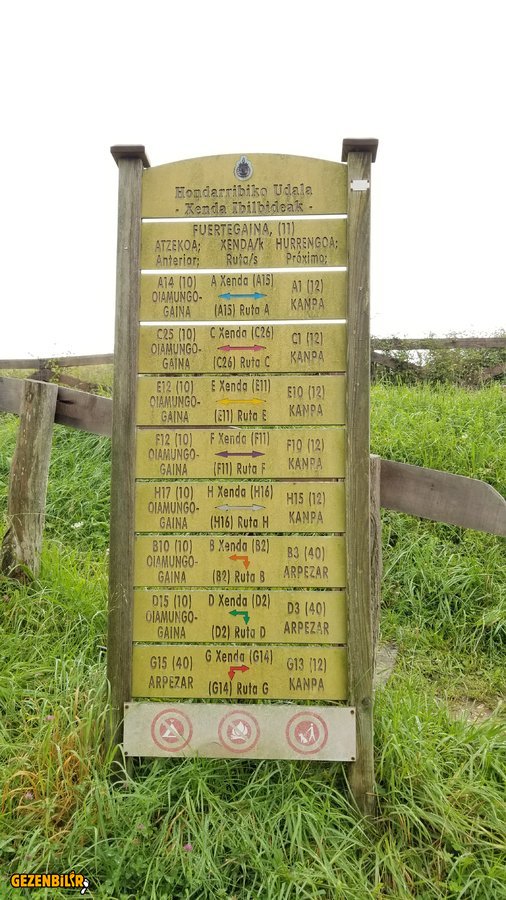 Hondarribiko Udala
- Xenda Ibilbideak -
FUERTEGAINA, (11)
ATZEKOA; XENDA/k HURRENGOA;
Anterior; Ruta/s Próximo;
A14 (10) A Xenda (A15) A1 (12)
OIAMUNGO- KANPA
GAINA (A15) Ruta A
C25 (10) C Xenda (C26) C1 (12)
OIAMUNGO- KANPA
GAINA (C26) Ruta C
E12 (10) E Xenda (E11) E10 (12)
OIAMUNGO- KANPA
GAINA (E11) Ruta E
F12 (10) F Xenda (F11) F10 (12)
OIAMUNGO- KANPA
GAINA (F11) Ruta F
H17 (10) H Xenda (H16) H15 (12)
OIAMUNGO- KANPA
GAINA (H16) Ruta H
B10 (10) B Xenda (B2) B3 (40)
OIAMUNGO- ARPEZAR
GAINA (B2) Ruta B
D15 (10) D Xenda (D2) D3 (40)
OIAMUNGO- ARPEZAR
GAINA (D2) Ruta D
G15 (40) G Xenda (G14) G13 (12)
ARPEZAR KANPA
(G14) Ruta G
GEZENBILIR